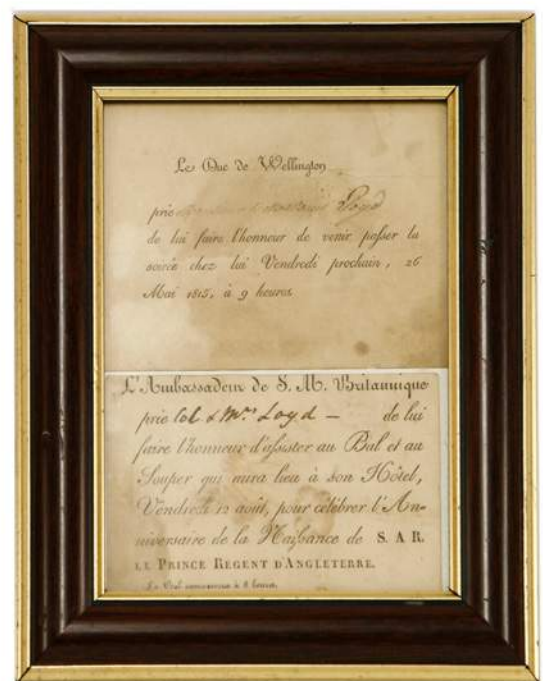 Le Duc de Wellington
prie Monsieur & Madame Loyd
de lui faire l'honneur de venir paſser la
soirée chez lui Vendredi prochain, 26
Mai 1815, à 9 heures.
L'Ambassadeur de S. M. Britannique
prie Col & Mrs Loyd — de lui
faire l'honneur d'aſsister au Bal et au
Souper qui aura lieu à son Hôtel,
Vendredi 12 août, pour célébrer l'An-
niversaire de la Naiſsance de S. A. R.
LE PRINCE REGENT D'ANGLETERRE.
Le Bal commencera à 8 heures.